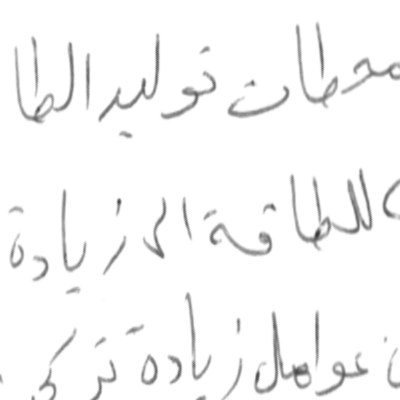 محطات توليد الطا
للطاقة الى زيادة
عوامل زيادة تركي